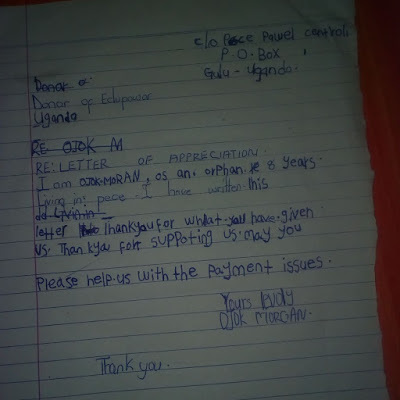 c/o Peace Powel Controli
P.O.BOX
Gulu - Uganda.
Donor of
Donor of Edupower
Uganda
RE OJOK M
RE: LETTER OF APPRECIATION.
I am OJOK MORAN, as an orphan 8 years.
Living in peace. I have written this
letter Thankyou for what you have given
us. Thankyou for suppoting us. may you
Please help us with the payment issues.
Yours lovely
OJOK MORGAN.
Thank you.